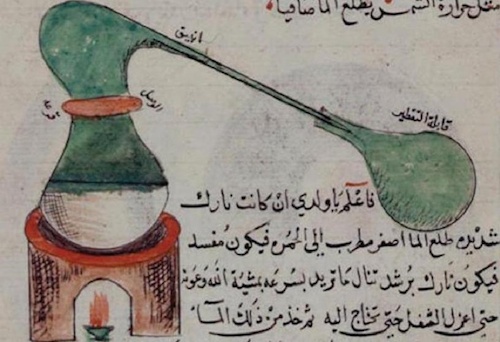 مثل حرارة الشمس يطلع الما صافيا
انبيق
الوصل
قرعه
قابلة التقطير
فاعلم يا ولدي ان كانت نارك
شديده طلع الما اصفر مطرب الى الحمره فيكون مفسد
فيكون نارك برشد تنال ما تريد بسرعه بمشية الله وعونه
اعزل الثفل حتى تحتاج اليه ثم خذ من ذلك الماء